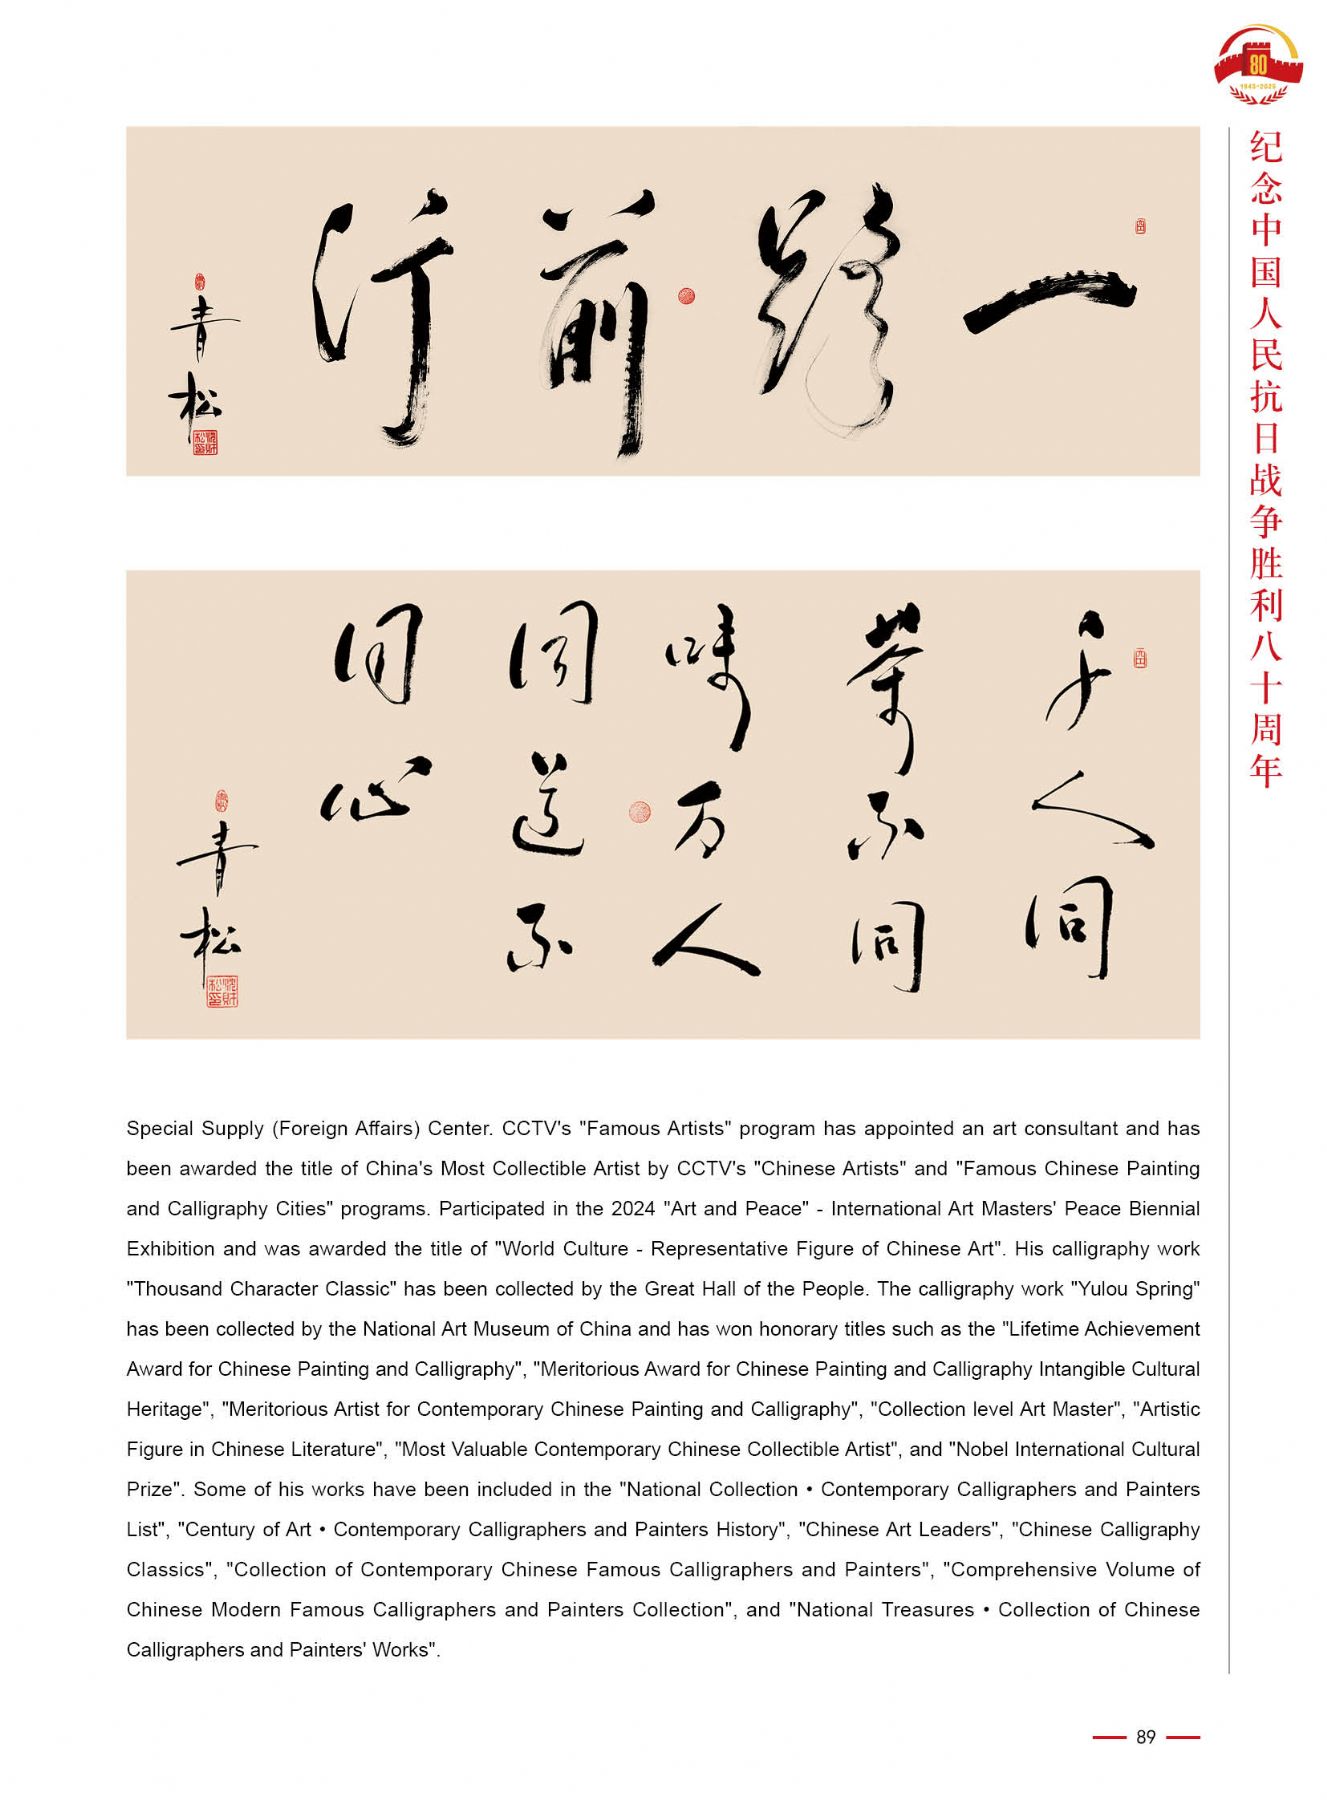 80
1945-2025
纪念中国人民抗日战争胜利八十周年
一路前行
青松
千人同
茶不同
味万人
同道不
同心
青松
Special Supply (Foreign Affairs) Center. CCTV's "Famous Artists" program has appointed an art consultant and has
been awarded the title of China's Most Collectible Artist by CCTV's "Chinese Artists" and "Famous Chinese Painting
and Calligraphy Cities" programs. Participated in the 2024 "Art and Peace" - International Art Masters' Peace Biennial
Exhibition and was awarded the title of "World Culture - Representative Figure of Chinese Art". His calligraphy work
"Thousand Character Classic" has been collected by the Great Hall of the People. The calligraphy work "Yulou Spring"
has been collected by the National Art Museum of China and has won honorary titles such as the "Lifetime Achievement
Award for Chinese Painting and Calligraphy", "Meritorious Award for Chinese Painting and Calligraphy Intangible Cultural
Heritage", "Meritorious Artist for Contemporary Chinese Painting and Calligraphy", "Collection level Art Master", "Artistic
Figure in Chinese Literature", "Most Valuable Contemporary Chinese Collectible Artist", and "Nobel International Cultural
Prize". Some of his works have been included in the "National Collection • Contemporary Calligraphers and Painters
List", "Century of Art • Contemporary Calligraphers and Painters History", "Chinese Art Leaders", "Chinese Calligraphy
Classics", "Collection of Contemporary Chinese Famous Calligraphers and Painters", "Comprehensive Volume of
Chinese Modern Famous Calligraphers and Painters Collection", and "National Treasures • Collection of Chinese
Calligraphers and Painters' Works".
89